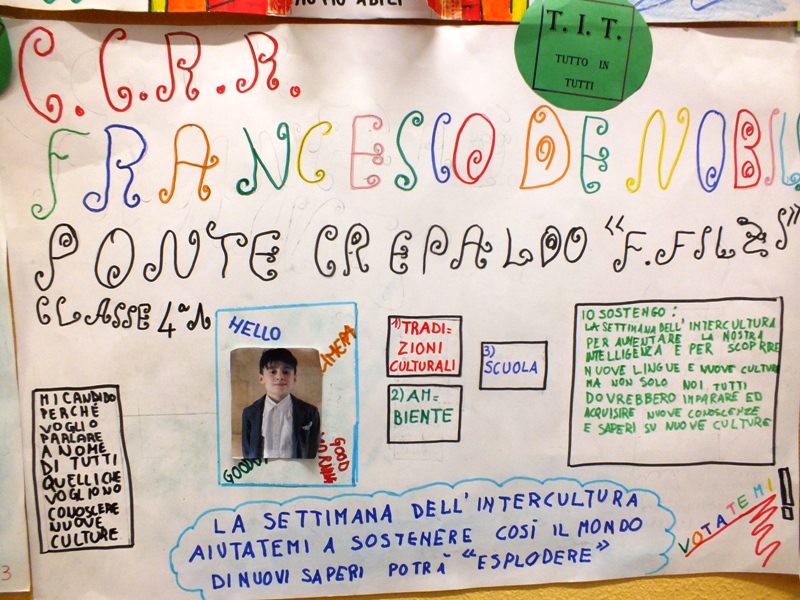 T. I. T.
TUTTO IN
TUTTI
C.C.R.R.
FRANCESCO DE NOBIL
PONTE CREPALDO "F.FILZI"
CLASSE 4ªA
HELLO
GOOD
MORNING
1) TRADI=
ZIONI
CULTURALI
2) AM=
BIENTE
3)
SCUOLA
IO SOSTENGO:
LA SETTIMANA DELL'INTERCULTURA
PER AUMENTARE LA NOSTRA
INTELLIGENZA E PER SCOPRIRE
NUOVE LINGUE E NUOVE CULTURE
MA NON SOLO NOI TUTTI
DOVREBBERO IMPARARE ED
ACQUISIRE NUOVE CONOSCENZE
E SAPERI SU NUOVE CULTURE
MI CANDIDO
PERCHÉ
VOGLIO
PARLARE
A NOME
DI TUTTI
QUELLI CHE
VOGLIONO
CONOSCERE
NUOVE
CULTURE
LA SETTIMANA DELL'INTERCULTURA
AIUTATEMI A SOSTENERE COSÌ IL MONDO
DI NUOVI SAPERI POTRÀ "ESPLODERE"
VOTATEMI!
3